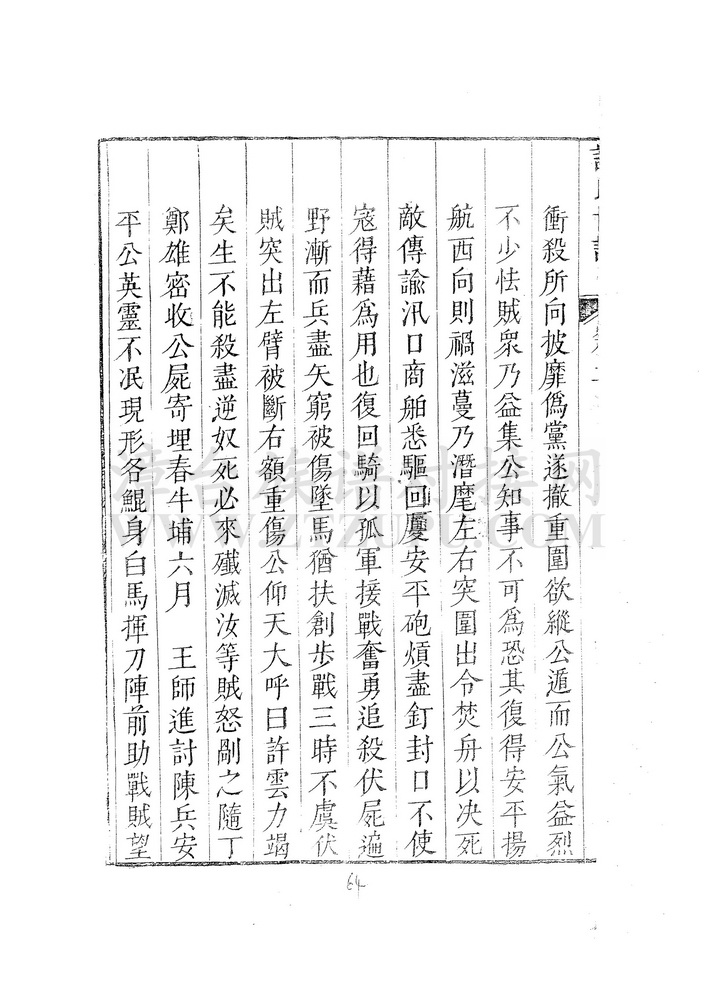 衝殺所向披靡僞黨遂撤重圍欲縱公遁而公氣益烈
不少怯賊衆乃益集公知事不可爲恐其復得安平揚
航西向則禍滋蔓乃潛麾左右突圍出令焚舟以决死
敵傳諭汛口商舶悉驅回廈安平砲煩盡釘封口不使
寇得藉爲用也復回騎以孤軍接戰奮勇追殺伏屍遍
野漸而兵盡矢窮被傷墜馬猶扶創步戰三時不虞伏
賊突出左臂被斷右額重傷公仰天大呼曰許雲力竭
矣生不能殺盡逆奴死必來殲滅汝等賊怒剮之隨丁
鄭雄密收公屍寄埋春牛埔六月　王師進討陳兵安
平公英靈不泯現形各鯤身白馬揮刀陣前助戰賊望
64
WWW.ZTZUPU.COM